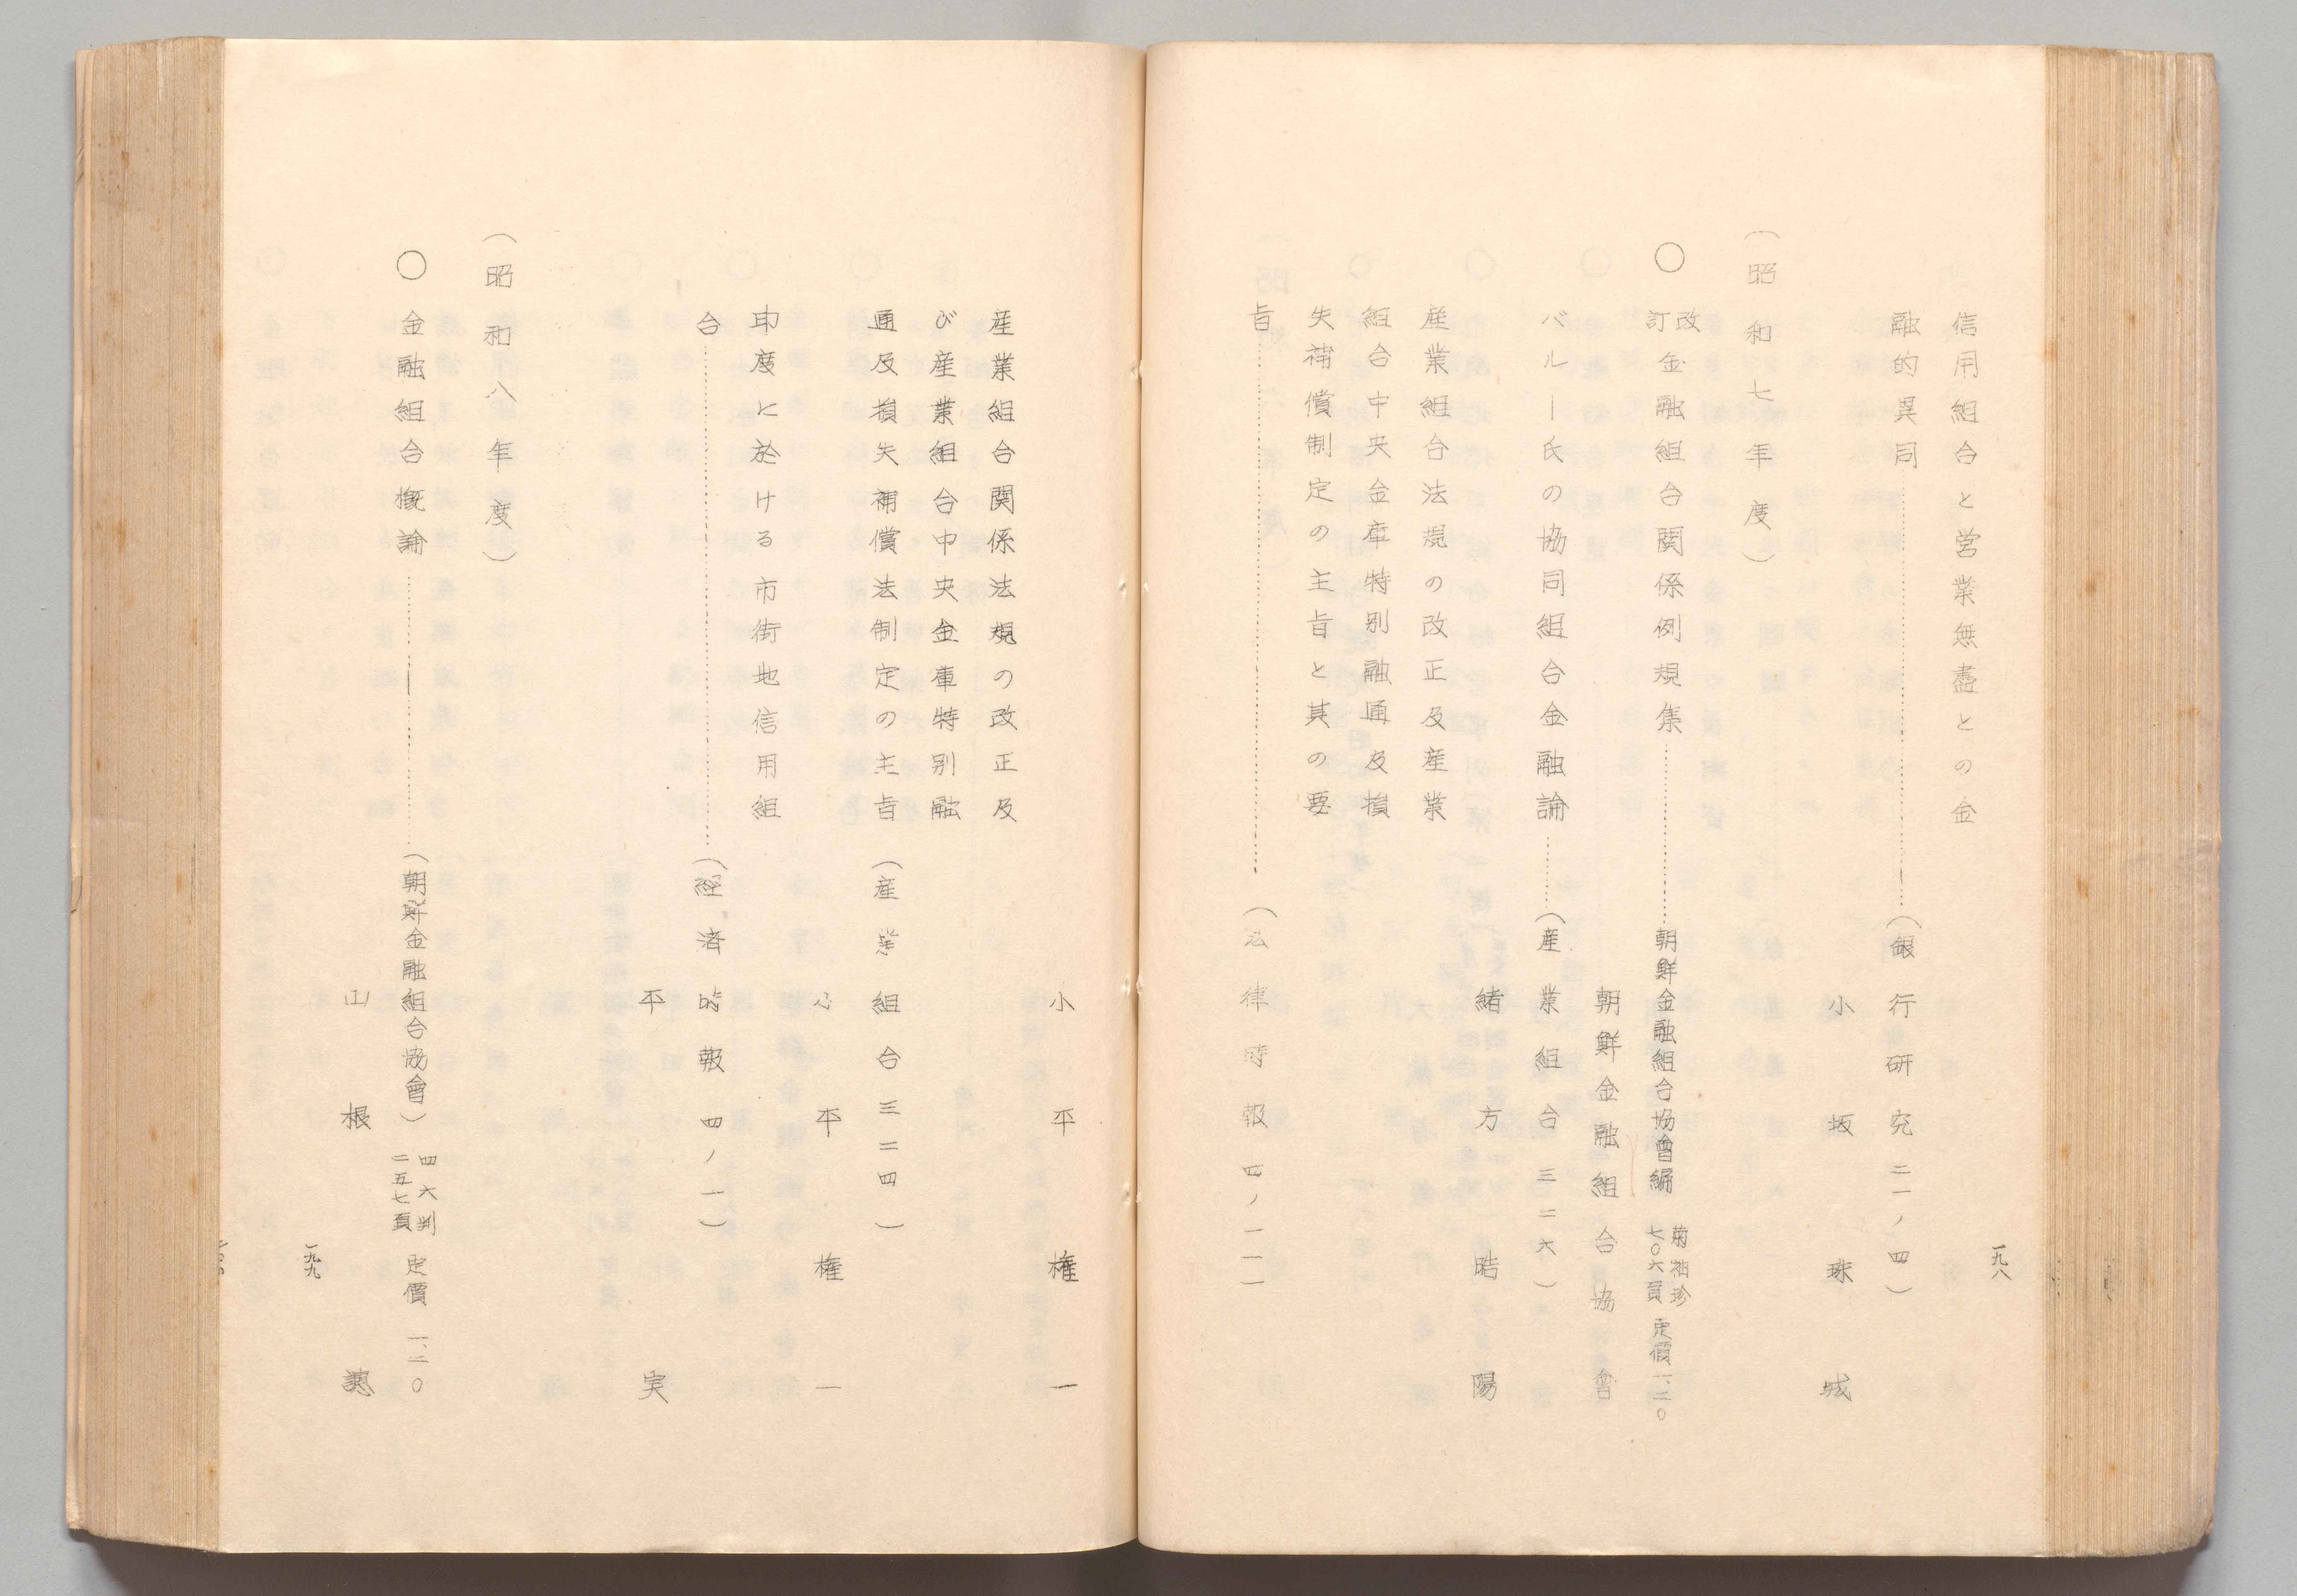 一九八
信用組合と営業無盡との金
融的異同………(銀行研究二一ノ四)
小坂珠城
(昭和七年度)
○改訂金融組合関係例規集………朝鮮金融組合協會編 菊袖珍 七〇六頁 定價一、二〇
朝鮮金融組合協會
バルー氏の協同組合金融論………(産業組合三二六)
緒方晧陽
産業組合法規の改正及産業
組合中央金庫特別融通及損
失補償制定の主旨と其の要
旨………(法律時報四ノ一一)
小平権一
産業組合関係法規の改正及
び産業組合中央金庫特別融
通及損失補償法制定の主旨(産業組合三二四)
小平権一
印度に於ける市街地信用組
合………(経済時報四ノ一)
平実
(昭和八年度)
○金融組合概論………(朝鮮金融組合協會) 四六判 二五七頁 定價一、二〇
山根譓
一九九